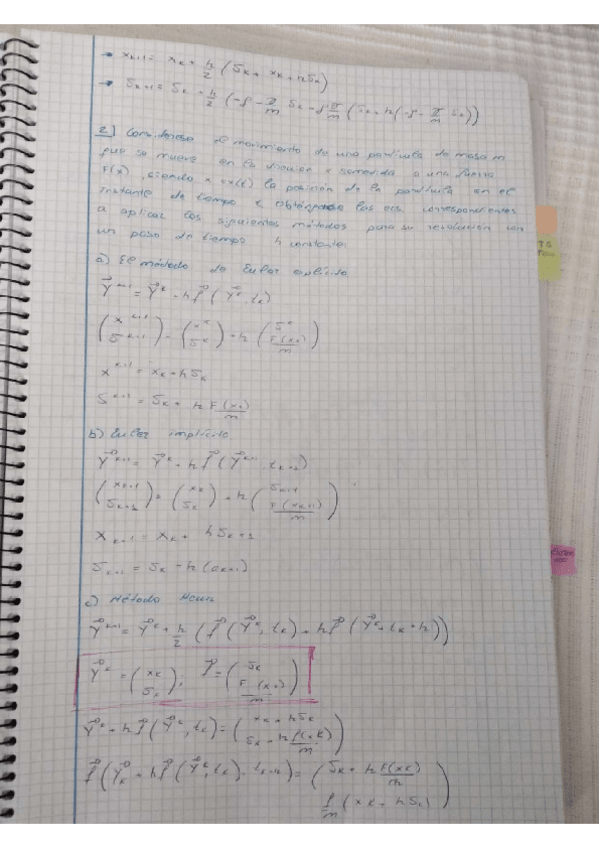 → x_{k+1} = x_k + h/2 (s_k + x_k + h s_k)
→ s_{k+1} = s_k + h/2 (-g - γ/m s_k - g γ/m (s_k + h(-g - γ/m s_k)))
2) Considérese el movimiento de una partícula de masa m
que se mueve en la dirección x sometida a una fuerza
F(x), siendo x = x(t) la posición de la partícula en el
instante de tiempo t. Obténganse las ecs. correspondientes
a aplicar los siguientes métodos para su resolución con
un paso de tiempo h constante.
a) El método de Euler explícito
Y^{k+1} = Y^k + h f (Y^k, t_k)
(x^{k+1} s^{k+1}) = (x^k s^k) + h (s^k F(x_k)/m)
x^{k+1} = x_k + h s_k
s^{k+1} = s_k + h F(x_k)/m
b) Euler implícito
Y^{k+1} = Y^k + h f (Y^{k+1}, t_{k+1})
(x_{k+1} s_{k+1}) = (x_k s_k) + h (s_{k+1} F(x_{k+1})/m)
x_{k+1} = x_k + h s_{k+1}
s_{k+1} = s_k + h
c) Método Heun
Y^{k+1} = Y^k + h/2 (f (Y^k, t_k) + h f (Y^k, t_k + h))
Y^k = (x_k s_k); f = (s_k F(x_k)/m)
Y^k + h f (Y^k, t_k) = (x_k + h s_k s_k + h f(xk)/m)
f (Y_k + h f (Y^k, t_k), t_{k+1}) = (s_k + h F(xk)/m f/m (xk + h s_k))